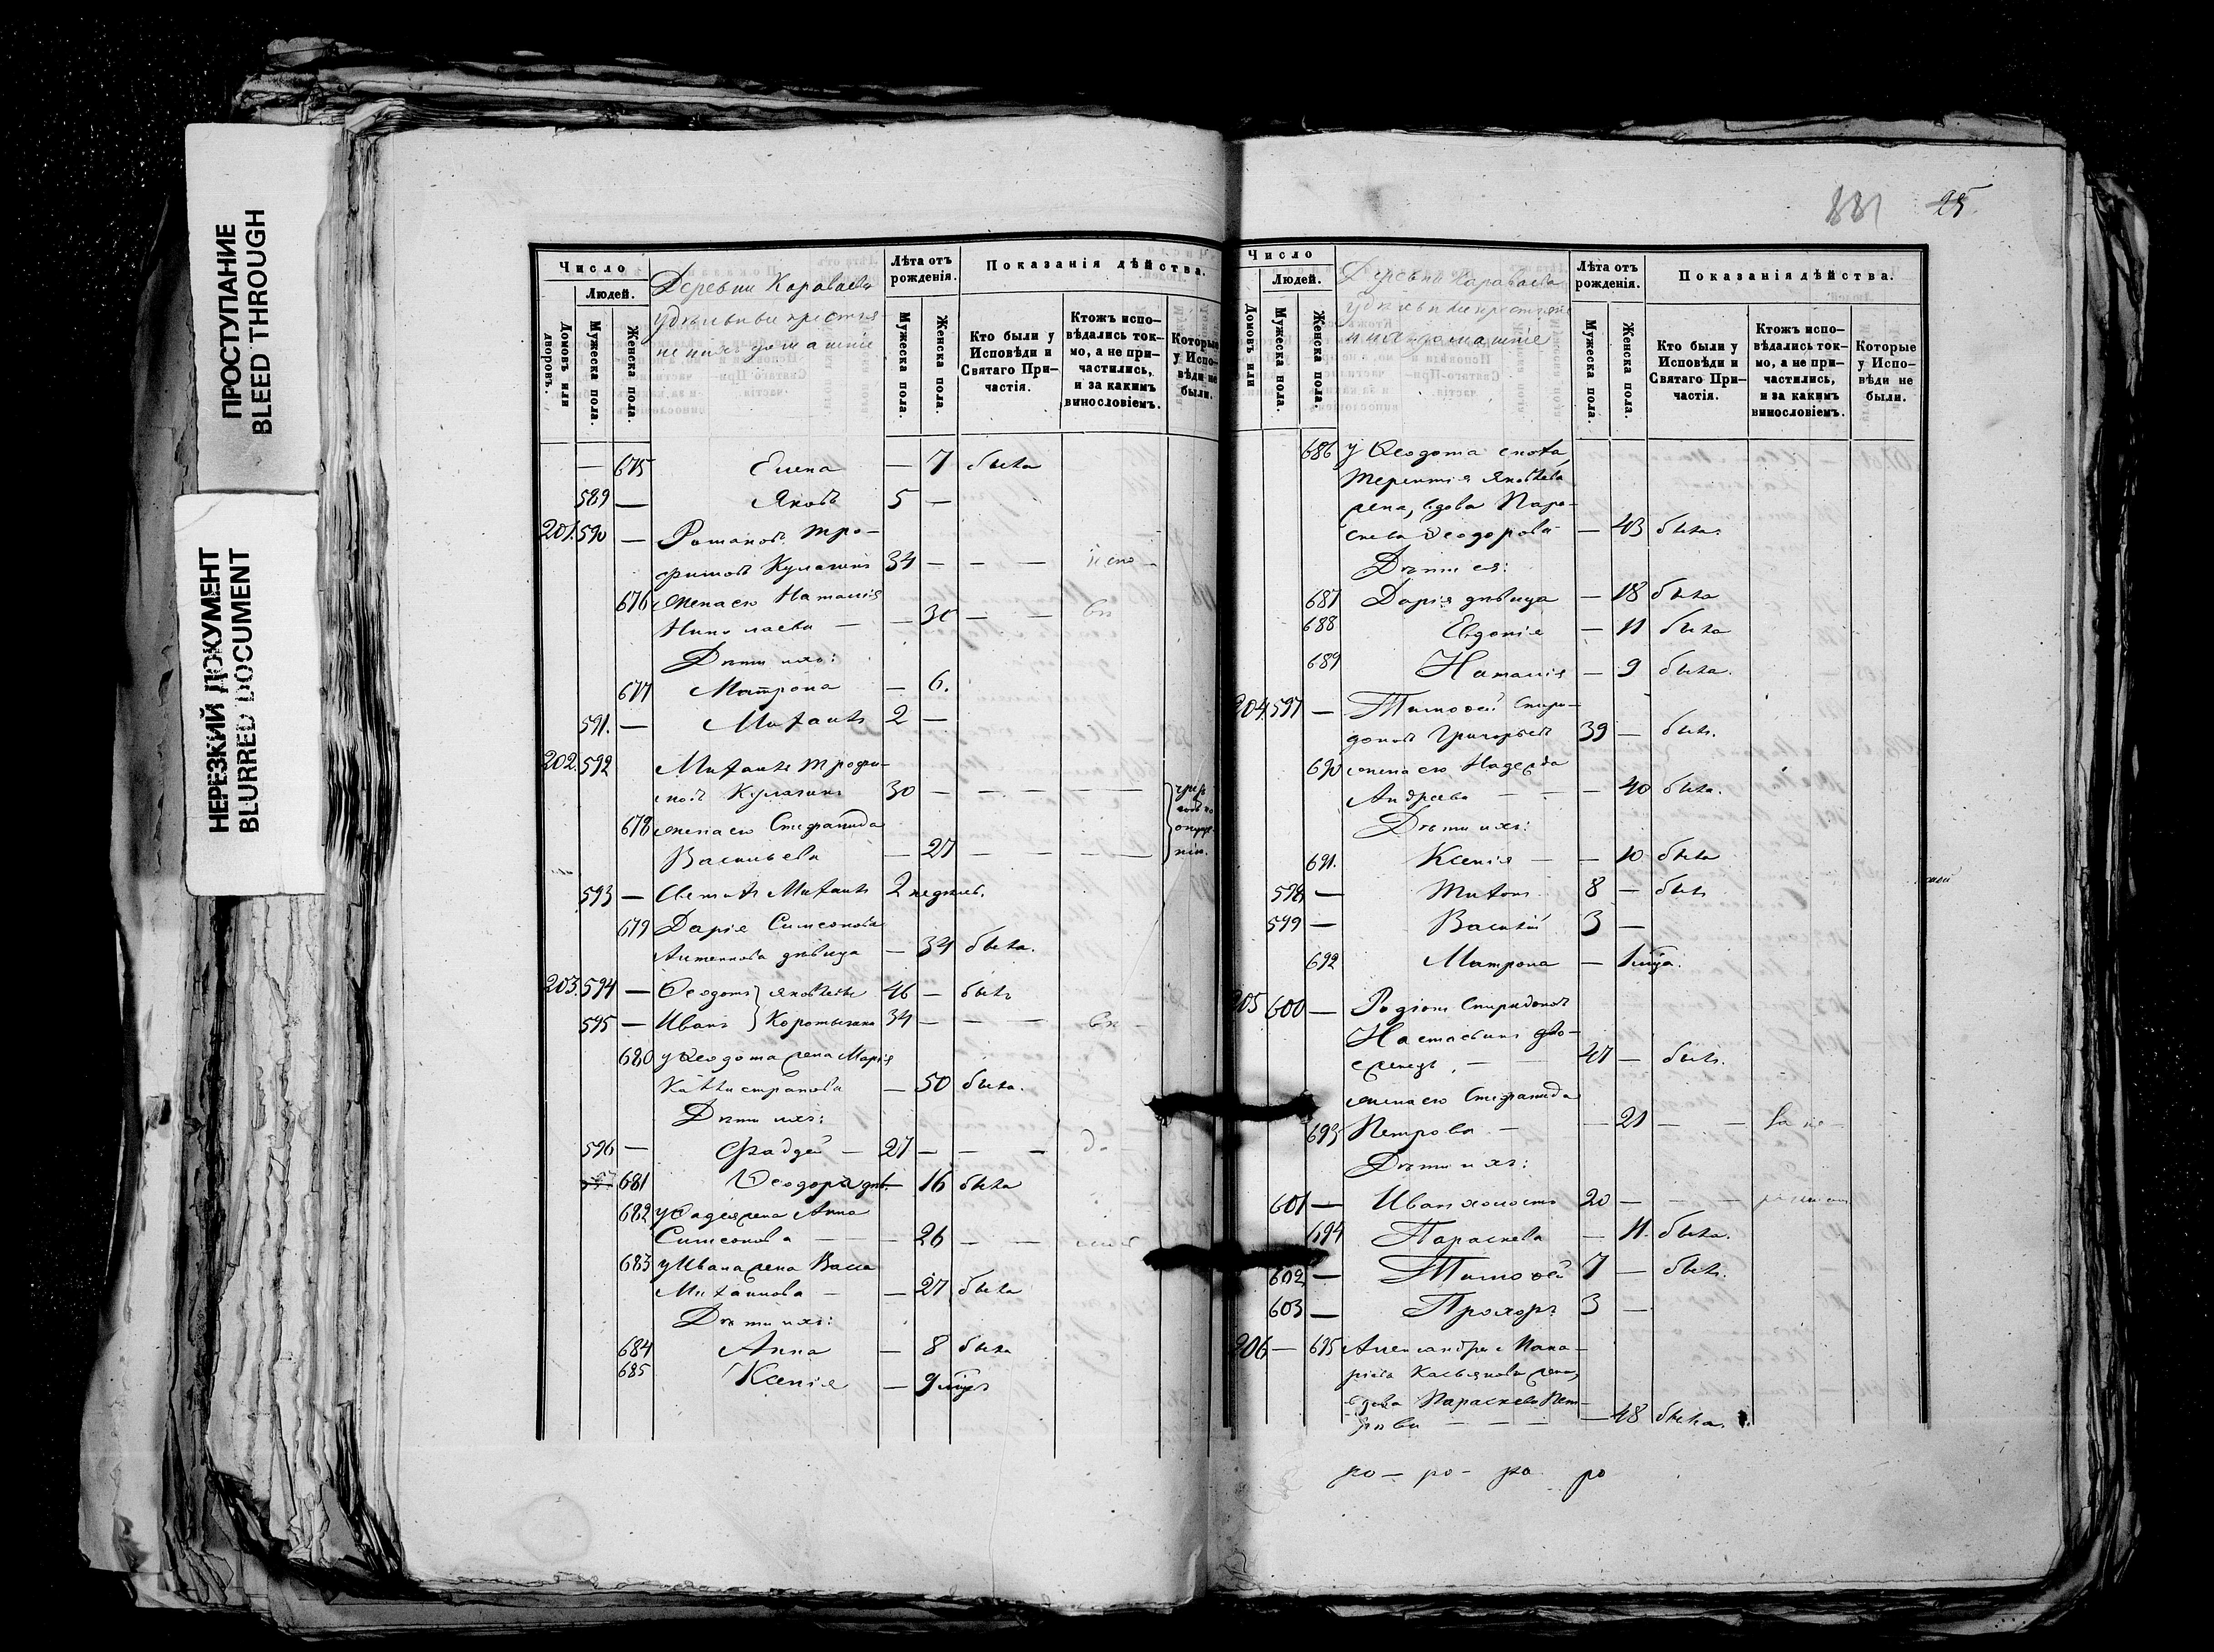 ПРОСТУПАНИЕ
BLEED THROUGH
НЕРЕЗКИЙ ДОКУМЕНТ
BLURRED DOCUMENT
Число
Людей.
Домовъ или дворовъ.
Мужеска пола.
Женска пола.
Деревни Караваева
удѣльные крестья-
не и ихъ домашніе
Лѣта отъ рожденія.
Мужеска пола.
Женска пола.
Показанія дѣйства.
Кто были у Исповѣди и Святаго При-частія.
Ктожъ испо-вѣдались ток-мо, а не при-частились, и за какимъ винословіемъ.
Которые у Испо-вѣди не были.
— 675 Елена — 7 была
589 — Яковъ 5 —
201. 590 — Романъ Тро-
фимовъ Кулагинъ 34 — — —
676 жена его Наталія
Николаева — — 30 — —
Дѣти ихъ:
677 Матрона — 6.
591. — Михаилъ 2 —
202. 592 Михаилъ Трофи-
мовъ Кулагинъ 30 — — — — —
678 жена его Стефанида
Васильева — 27 — — — —
593 — Михаилъ 2 недѣль.
679 Дарія Симеонова
дѣвица — 34 была.
203. 594 — Ѳеодотъ } Яковлевы 46 — былъ
595 — Иванъ } 34 — — —
680 у Ѳеодота жена Марія
Каллистратова — 50 была.
Дѣти ихъ:
596 — Фаддей — 27 — — —
681 Ѳеодора дѣв. — 16 была
682 у Фадея жена Анна
Симеонова — — — 26 — —
683 у Ивана жена Васса
Михаилова — — 27 была
Дѣти ихъ:
684 Анна — 8 была
685 Ксенія — 9 мѣс.
881 25.
Число
Людей.
Домовъ или
Мужеска пола.
Женска пола.
Деревни Караваева
удѣльные крестьяне
и ихъ домашніе
Лѣта отъ рожденія.
Мужеска пола.
Женска пола.
Показанія дѣйства.
Кто были у Исповѣди и Святаго При-частія.
Ктожъ испо-вѣдались ток-мо, а не при-частились, и за какимъ винословіемъ.
Которые у Испо-вѣди не были.
686 у Ѳеодота сноха,
Терентія Яковлева
жена, вдова Пара-
скева Ѳеодорова — 43 была.
Дѣти ея:
687 Дарія дѣвица — 18 была
688 Евдокія — 11 была
689 Наталія — 9 была.
204. 597 — Тимоѳей Спири-
доновъ Григорьевъ 39 — былъ.
690 жена его Надежда
Андреева — — — 40 была.
Дѣти ихъ:
691. Ксенія — — 10 была
598 — Титонъ 8 — былъ
599 — Василій 3 —
692 Матрона — 1 мѣса.
205 600 — Родіонъ Спиридоновъ
— 47 — былъ.
жена его Стефанида
693 Петрова — — 21 — —
Дѣти ихъ:
601 — Иванъ холостъ 20 — — —
694 Параскева — 11. была.
602 — Тимоѳей 7 — былъ.
603 — Прохоръ 3 —
206 — 695 Александра Мака-
ріева Касьянова жена,
вдова Параскева Пет-
рова — — — — 48 была.
ро — ро — ро ро